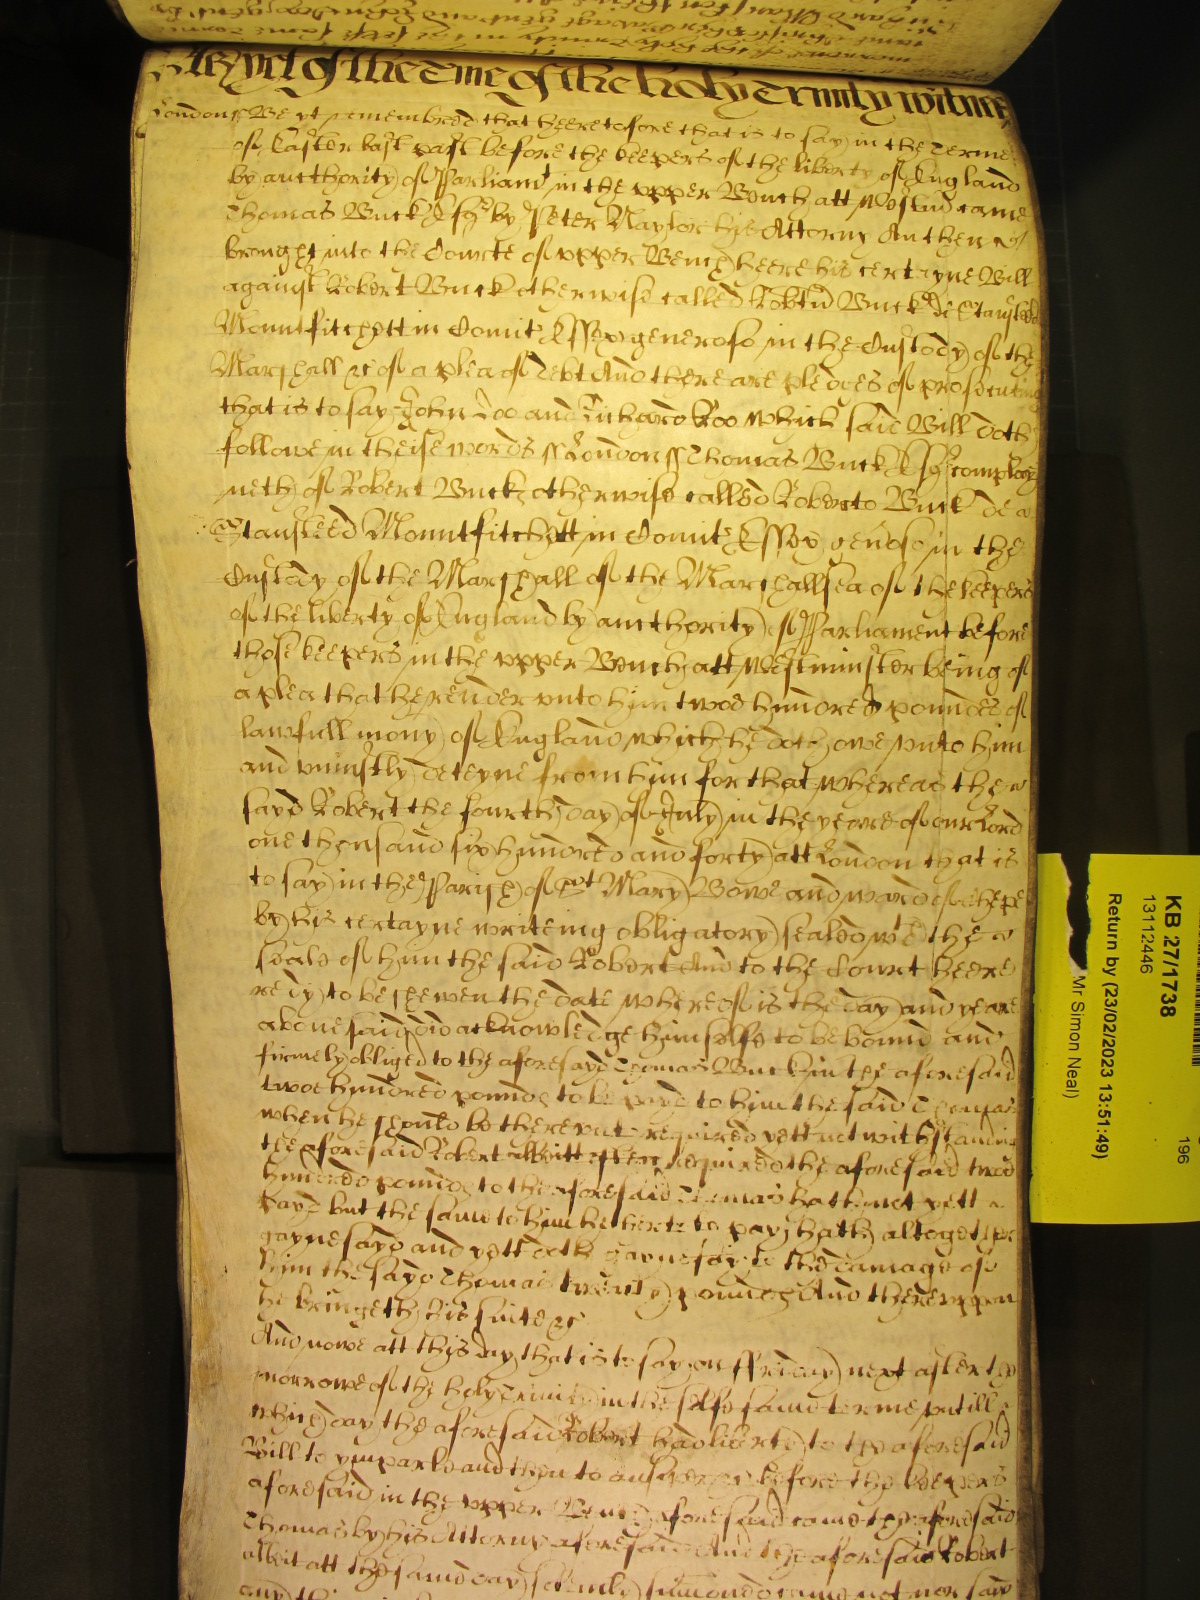 As yet of the Tme of the holy Trinity witnes
London ss Be yt remembred that heeretofore that is to say in the Terme
of Easter last past before the keepers of the liberty of England
by aucthority of Parliamt in the vpper Bench att Westmr came
Thomas Buck Esqr by Peter Naylor his Attorny And then
brought into the Courte of vpper Bench heere his certayne Bill
against Robert Buck otherwise called Robtu Buck de Stansteed
Mountfitchett in Comit Essex generoso in the Custody of the
Marshall &c of a plea of debt And there are pledges of prosecuting
that is to say John Doo and Richard Roo which said Bill doth
followe in theise words ss London ss Thomas Buck Esqr complay
neth of Robert Buck otherwise called Roberto Buck de
Stansteed Mountfitchett in Comit Essex genoso in the
Custody of the Marshall of the Marshallsea of the keepers
of the liberty of England by aucthority of Parliament before
those keepers in the vpper Bench att Westminster being of
a plea that he render vnto him twoe hundred poundes of
lawfull mony of England which he doth owe vnto him
and vniustly deteyne from him for that whereas the
sayd Robert the fourth day of July in the yeare of our Lord
one thousand six hundred and forty att London that is
to say in the Parish of St Mary Bowe and ward of Chepe
by his certayne writeing obligatory sealed wth the
seale of him the said Robert And to the Court heere
redy to be shewen the date whereof is the day and yeare
abouesaid did acknowledge himselfe to be bound and
firmely obliged to the aforesayd Thomas Buck in the aforesaid
twoe hundred poundes to be payd to him the said Thomas
when he should be therevnto required yett notwithstanding
the aforesaid Robert albeitt often required the aforesaid twoe
hundred poundes to the aforesaid Thomas hath not yett
payd but the same to him he herto to pay hath altogether
gaynesayd and yett doth gaynesay to the damage of
him the sayd Thomas twenty poundes And therevppon
he bringeth his suite &c
And nowe att this day that is to say on ffriday next after the
morrowe of the holy Trinity in the selfe same terme vntill
which day the aforesaid Robert had liberty to the aforesaid
Bill to ymparle and then to answere &c before the keepers
aforesaid in the vpper Bench aforesaid came the aforesaid
Thomas by his Attorny aforesaid And the aforesaid Robert
albeit att the same day solemly sumoned came not nor said
any thi
KB 27/1738
13112446
196
Return by (23/02/2023 13:51:49)
Mr Simon Neal)